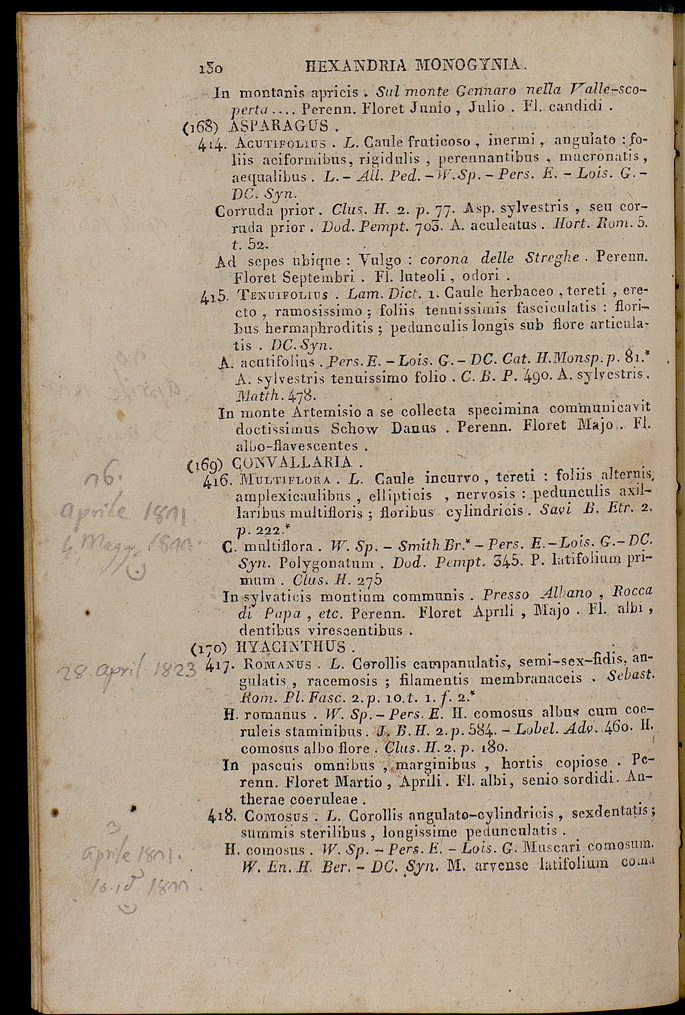 130 HEXANDRIA MONOGYNIA.
In montanis apricis. Sul monte Gennaro nella Valle-sco-
perta.... Perenn. Floret Junio, Julio. Fl. candidi.
(168) ASPARAGUS.
414. ACUTIFOLIUS. L. Caule fruticoso, inermi, angulato: fo-
liis aciformibus, rigidulis, perennantibus, mucronatis,
aequalibus. L. - All. Ped. - W. Sp. - Pers. E. - Lois. G. -
DC. Syn.
Corruda prior. Clus. H. 2. p. 77. Asp. sylvestris, seu cor-
ruda prior. Dod. Pempt. 703. A. aculeatus. Hort. Rom. 5.
t. 52.
Ad sepes ubique: Vulgo: corona delle Streghe. Perenn.
Floret Septembri. Fl. luteoli, odori.
415. TENUIFOLIUS. Lam. Dict. 1. Caule herbaceo, tereti, ere-
cto, ramosissimo; foliis tenuissimis fasciculatis: flori-
bus hermaphroditis; pedunculis longis sub flore articula-
tis. DC. Syn.
A. acutifolius. Pers. E. - Lois. G. - DC. Cat. H. Monsp. p. 81.*
A. sylvestris tenuissimo folio. C. B. P. 490. A. sylvestris.
Matth. 478.
In monte Artemisio a se collecta specimina communicavit
doctissimus Schow Danus. Perenn. Floret Majo. Fl.
albo-flavescentes.
(169) CONVALLARIA.
416. MULTIFLORA. L. Caule incurvo, tereti: foliis alternis,
amplexicaulibus, ellipticis, nervosis: pedunculis axil-
laribus multifloris; floribus cylindricis. Savi B. Etr. 2.
p. 222.*
C. multiflora. W. Sp. - Smith Br.* - Pers. E. - Lois. G. - DC.
Syn. Polygonatum. Dod. Pempt. 345. P. latifolium pri-
mum. Clus. H. 275
In sylvaticis montium communis. Presso Albano, Rocca
di Papa, etc. Perenn. Floret Aprili, Majo. Fl. albi,
dentibus virescentibus.
(170) HYACINTHUS.
28 april 1823
417. ROMANUS. L. Corollis campanulatis, semi-sex-fidis, an-
gulatis, racemosis; filamentis membranaceis. Sebast.
Rom. Pl. Fasc. 2. p. 10. t. 1. f. 2.*
H. romanus. W. Sp. - Pers. E. H. comosus albus cum coe-
ruleis staminibus. J. B. H. 2. p. 584. - Lobel. Adv. 460. H.
comosus albo flore. Clus. H. 2. p. 180.
In pascuis omnibus, marginibus, hortis copiose. Pe-
renn. Floret Martio, Aprili. Fl. albi, senio sordidi. An-
therae coeruleae.
418. COMOSUS. L. Corollis angulato-cylindricis, sexdentatis;
summis sterilibus, longissime pedunculatis.
3
aprile
H. comosus. W. Sp. - Pers. E. - Lois. G. Muscari comosum.
W. En. H. Ber. - DC. Syn. M. arvense latifolium coma